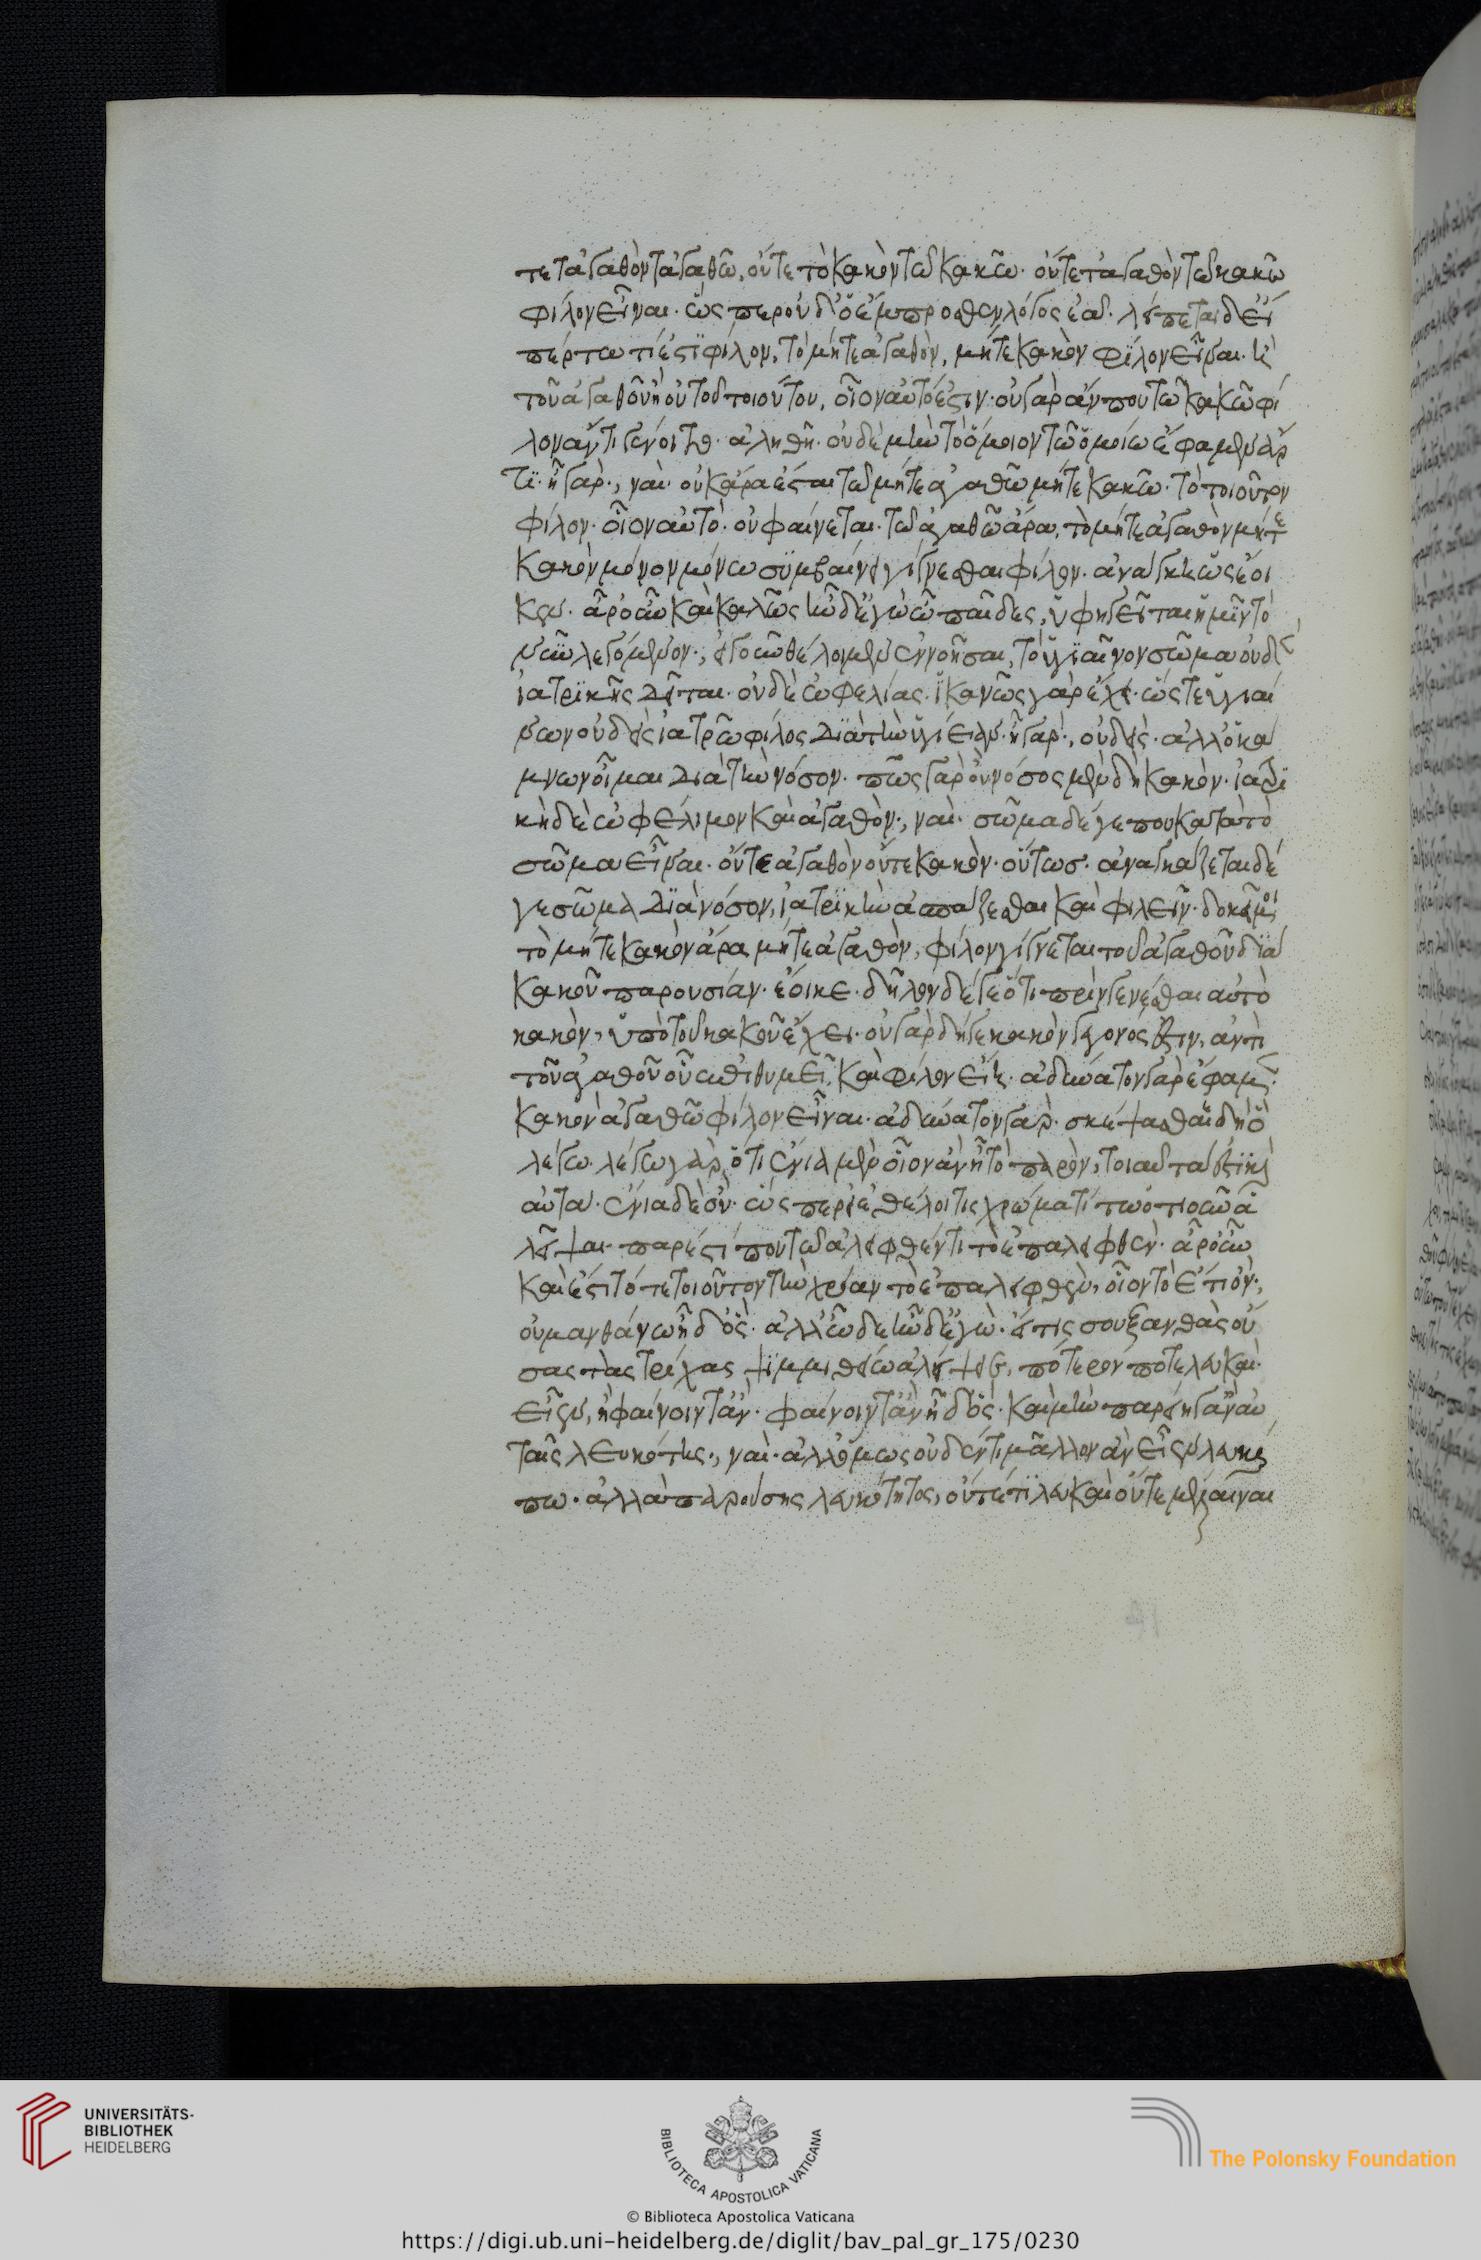 τε τἀγαθὸν τἀγαθῶ, οὔτε τὸ κακὸν τῶ κακῶ· οὔτε τἀγαθὸν τῶ κακῶ
φίλον εἶναι· ὥσπερ οὐδ' ὁ ἔμπροσθεν λόγος ἐᾶ· λείπεται δ' εἴ
πέρ τω τί ἐστι φίλον, τὸ μήτε ἀγαθὸν, μήτε κακὸν φίλον εἶναι· ἢ
τοῦ ἀγαθοῦ ἢ οὐ τοῦ τοιούτου, οἷον αὐτό ἐστιν· οὐ γὰρ ἄν που τῶ κακῶ φί
λον ἄν τι γένοιτο· ἀληθῆ· οὐδὲ μὴν τὸ ὅμοιον τῶ ὁμοίω ἔφαμεν ἄρ
τι· ἦ γάρ·, ναὶ· οὐκ ἄρα ἔσται τῶ μήτε ἀγαθῶ μήτε κακῶ· τὸ τοιοῦτον
φίλον· οἷον αὐτὸ· οὐ φαίνεται· τῶ ἀγαθῶ ἄρα, τὸ μήτε ἀγαθὸν μήτε
κακὸν μόνον μόνω συμβαίνει γίγνεσθαι φίλον· ἀνάγκη ὡς ἔοι
κεν· ἆρ' οὖν καὶ καλῶς ἦν δ' ἐγὼ ὦ παῖδες, ὑφηγεῖται ἡμῖν τὸ
νῦν λεγόμενον·, εἰ γοῦν θέλοιμεν ἐννοῆσαι, τὸ ὑγιαῖνον σῶμα οὐδὲν
ἰατρικῆς δεῖται· οὐδὲ ὠφελίας· ἱκανῶς γὰρ ἔχει· ὥστε ὑγιαί
νων οὐδεὶς ἰατρῶ φίλος διὰ τὴν ὑγίειαν· ἦ γάρ·, οὐδεὶς· ἀλλ' ὁ κά
μνων οἶμαι διὰ τὴν νόσον· πῶς γὰρ οὔ νόσος μὲν δὴ κακὸν· ἰατρι
κὴ δὲ ὠφέλιμον καὶ ἀγαθὸν·, ναὶ· σῶμα δέ γε που κατὰ τὸ
σῶμα εἶναι· οὔτε ἀγαθὸν οὔτε κακὸν· οὕτως· ἀναγκάζεται δέ
γε σῶμα διὰ νόσον, ἰατρικὴν ἀσπάζεσθαι καὶ φιλεῖν· δοκεῖ μοι
τὸ μήτε κακὸν ἄρα μήτε ἀγαθὸν, φίλον γίγνεται τοῦ ἀγαθοῦ διὰ
κακοῦ παρουσίαν· ἔοικε· δῆλον δέ γε ὅτι πρὶν γενέσθαι αὐτὸ
κακὸν, ὑπὸ τοῦ κακοῦ ἔχει· οὐ γὰρ δή γε κακὸν γεγονός ἐστιν, ἀντὶ
τοῦ ἀγαθοῦ οὗ ἐπιθυμεῖ, καὶ φίλον εἴη· ἀδύνατον γὰρ ἔφαμεν·
κακὸν ἀγαθῶ φίλον εἶναι· ἀδύνατον γὰρ· σκέψασθαι δὴ ὃ
λέγω· λέγω γὰρ ὅτι ἔνια μὲν οἷον ἂν ἦ τὸ παρὸν, τοιαῦτά ἐστι καὶ
αὐτά· ἔνια δὲ οὔ· ὥσπερ εἰ ἐθέλοι τις χρώματί τω ὁτιοῦν ἀ
λεῖψαι· πάρεστί που τῶ ἀλειφθέντι τὸ ἐπαλειφθέν· ἆρ' οὖν
καὶ ἔστι τότε τοιοῦτον τὴν χρόαν τὸ ἐπαλειφθὲν, οἷον τὸ ἔτι ὄν·,
οὐ μανθάνω ἦ δ' ὅς· ἀλλ' ὧδε ἦν δ' ἐγὼ· εἴ τις σου ξανθὰς οὔ
σας τὰς τρίχας ψιμμιθίω ἀλείψειε, πότερόν ποτε λευκαὶ
εἶεν, ἢ φαίνοιντ' ἄν· φαίνοιντ' ἂν ἦ δ' ὅς· καὶ μὴν παρείη γ' ἂν αὐ
ταῖς λευκότης·, ναὶ· ἀλλ' ὅμως οὐδέν τι μᾶλλον ἂν εἶεν λευκαί
πω· ἀλλὰ παρούσης λευκότητος, οὔτέ τι λευκαὶ οὔτε μέλαιναι
UNIVERSITÄTS-
BIBLIOTHEK
HEIDELBERG
BIBLIOTECA APOSTOLICA VATICANA
The Polonsky Foundation
© Biblioteca Apostolica Vaticana
https://digi.ub.uni-heidelberg.de/diglit/bav_pal_gr_175/0230